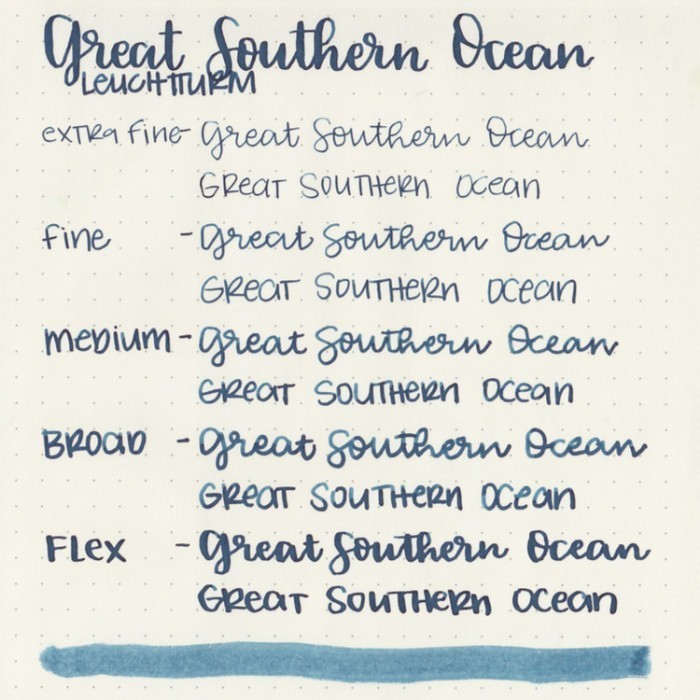 Great Southern Ocean
LEUCHTTURM
extra fine - Great Southern Ocean
GReat SOUTHeRn Ocean
fine - Great Southern Ocean
GReat SOUTHeRn Ocean
meDium - Great Southern Ocean
GReat SOUTHeRn Ocean
BRoaD - Great Southern Ocean
GReat SOUTHeRn Ocean
FLex - Great Southern Ocean
GReat SOUTHeRn Ocean